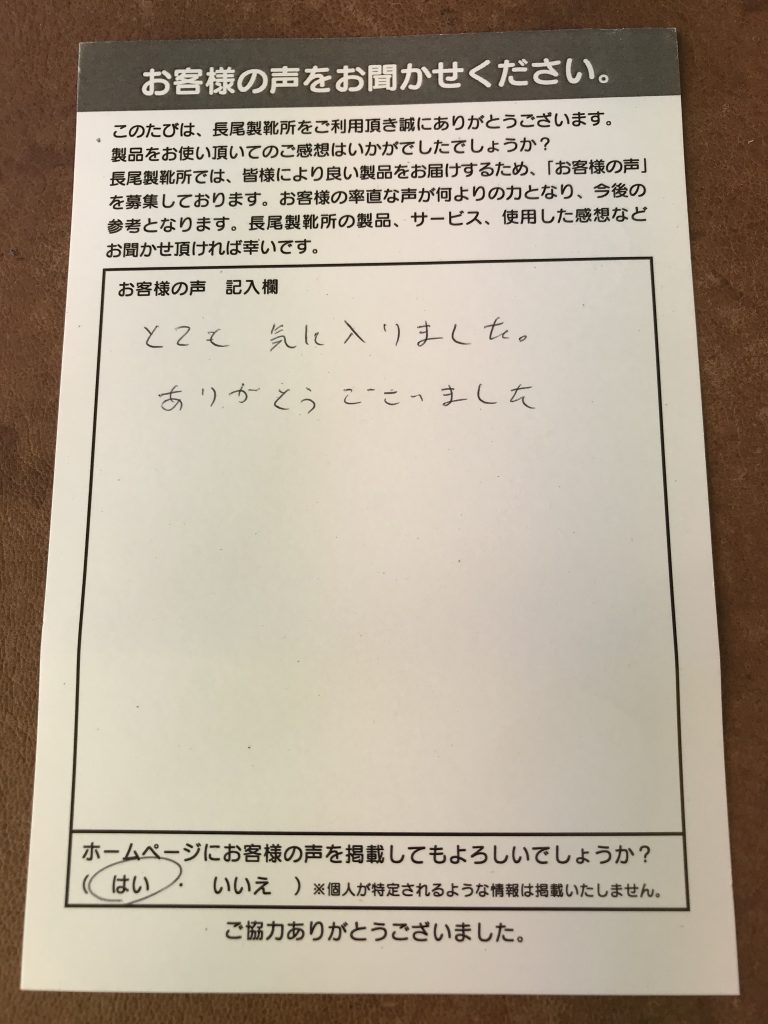 お客様の声をお聞かせください。
このたびは、長尾製靴所をご利用頂き誠にありがとうございます。
製品をお使い頂いてのご感想はいかがでしたでしょうか？
長尾製靴所では、皆様により良い製品をお届けするため、「お客様の声」
を募集しております。お客様の率直な声が何よりの力となり、今後の
参考となります。長尾製靴所の製品、サービス、使用した感想など
お聞かせ頂ければ幸いです。
お客様の声 記入欄
とても 気に入りました。
ありがとう ございました
ホームページにお客様の声を掲載してもよろしいでしょうか？
（ はい ・ いいえ ）※個人が特定されるような情報は掲載いたしません。
ご協力ありがとうございました。